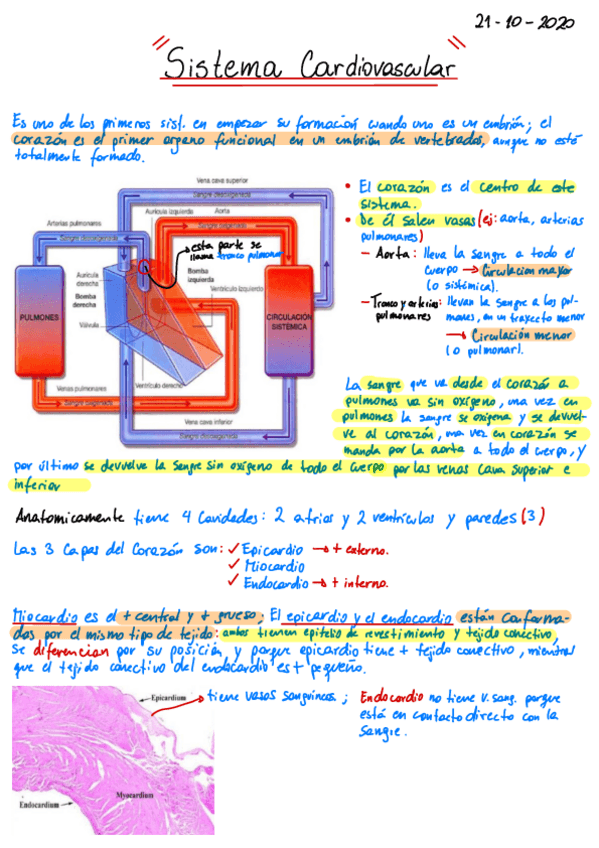 21-10-2020
"Sistema Cardiovascular"
Es uno de los primeros sist. en empezar su formación cuando uno es un embrión; el
corazón es el primer organo funcional en un embrión de vertebrados, aunque no esté
totalmente formado.
Vena cava superior
Sangre desoxigenada
Aurícula izquierda
Aorta
Sangre oxigenada
Arterias pulmonares
Sangre desoxigenada
esta parte se
llama tronco pulmonar
Aurícula
derecha
Bomba
izquierda
Bomba
derecha
Ventrículo izquierdo
PULMONES
CIRCULACIÓN
SISTÉMICA
Válvula
Ventrículo derecho
Venas pulmonares
Sangre oxigenada
Vena cava inferior
Sangre desoxigenada
• El corazón es el centro de este
sistema.
• De él salen vasas (ej: aorta, arterias
pulmonares)
- Aorta: lleva la sangre a todo el
cuerpo → Circulación mayor
(o sistémica).
- Tronco y arterias pulmonares: llevan la sangre a los pul-
mones, en un trayecto menor
→ Circulación menor
(o pulmonar).
La sangre que va desde el corazón a
pulmones va sin oxígeno, una vez en
pulmones la sangre se oxigena y se devuel-
ve al corazón, una vez en corazón se
manda por la aorta a todo el cuerpo, y
por último se devuelve la sangre sin oxígeno de todo el cuerpo por las venas cava superior e
inferior
Anatomicamente tiene 4 cavidades: 2 atrios y 2 ventrículos y paredes (3)
Las 3 capas del Corazón son: ✓ Epicardio → + externo.
✓ Miocardio
✓ Endocardio → + interno.
Miocardio es el + central y + grueso; El epicardio y el endocardio están conforma-
dos por el mismo tipo de tejido: ambos tienen epitelio de revestimiento y tejido conectivo,
se diferencian por su posición y porque epicardio tiene + tejido conectivo, mientras
que el tejido conectivo del endocardio es + pequeño.
Epicardium
→ tiene vasos sanguíneos.;
Endocardio no tiene v. sang. porque
está en contacto directo con la
sangre.
Myocardium
Endocardium